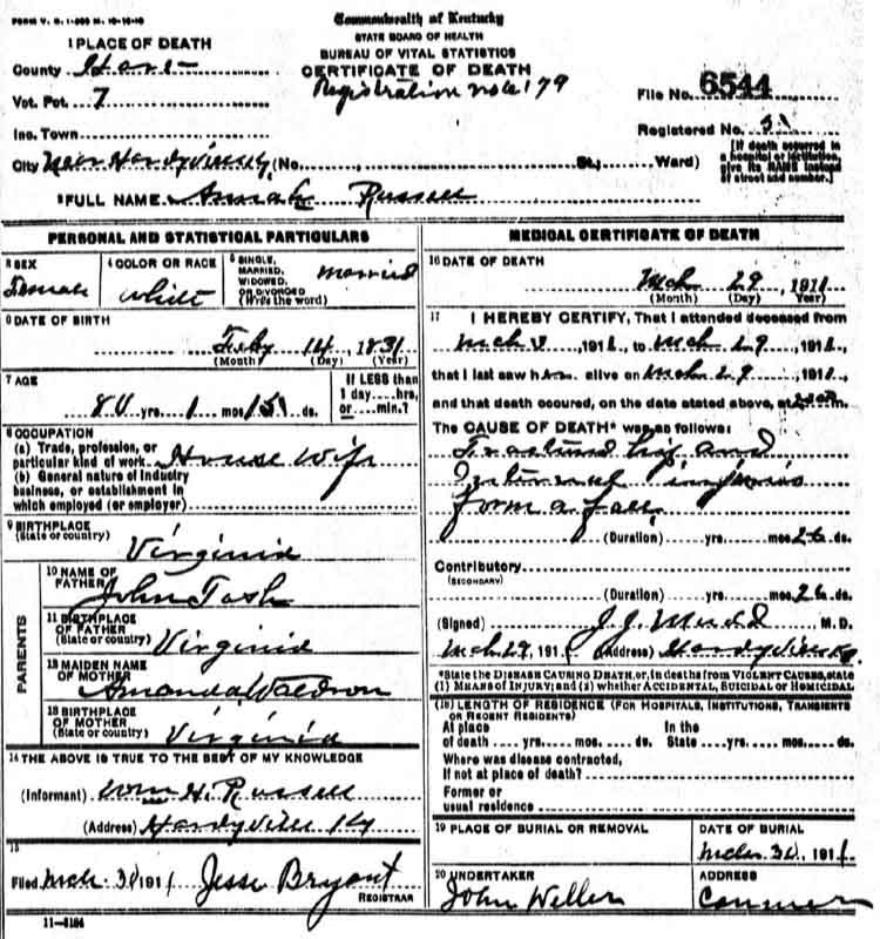 FORM V. S. 1-
Commonwealth of Kentucky
STATE BOARD OF HEALTH
BUREAU OF VITAL STATISTICS
CERTIFICATE OF DEATH
1 PLACE OF DEATH
County
Vot. Pct. 7
Registration No. 179
File No. 6544
Inc. Town
Registered No.
City Near Hardyville (No. St., Ward)
[If death occurred in
a hospital or institution,
give its NAME instead
of street and number.]
2 FULL NAME Russell
PERSONAL AND STATISTICAL PARTICULARS
3 SEX
Female
4 COLOR OR RACE
White
5 SINGLE,
MARRIED,
WIDOWED,
OR DIVORCED
(Write the word)
Married
6 DATE OF BIRTH
Feby 14, 1831
(Month) (Day) (Year)
7 AGE
80 yrs. 1 mos. 15 ds.
If LESS than
1 day....hrs,
or....min.?
8 OCCUPATION
(a) Trade, profession, or
particular kind of work House Wife
(b) General nature of industry
business, or establishment in
which employed (or employer)
9 BIRTHPLACE
(State or country)
Virginia
PARENTS
10 NAME OF
FATHER
John
11 BIRTHPLACE
OF FATHER
(State or country) Virginia
12 MAIDEN NAME
OF MOTHER
Amanda Waldron
13 BIRTHPLACE
OF MOTHER
(State or country) Virginia
14 THE ABOVE IS TRUE TO THE BEST OF MY KNOWLEDGE
(Informant) Wm H. Russell
(Address) Hardyville Ky
15
Filed Mch. 1911 Jesse Bryant
REGISTRAR
11-5184
MEDICAL CERTIFICATE OF DEATH
16 DATE OF DEATH
Mch 29, 1911
(Month) (Day) Year)
17 I HEREBY CERTIFY, That I attended deceased from
Mch, 1911, to Mch. 29, 1911,
that I last saw her alive on Mch 29, 1911,
and that death occured, on the date stated above, at m.
The CAUSE OF DEATH* was as follows:
hip and
injuries
form a fall
(Duration) yrs. mos. 26 ds.
Contributory
(SECONDARY)
(Duration) yrs. mos. 26 ds.
(Signed) J. J. M. D.
Mch. 29, 191 (Address) Hardyville Ky.
*State the DISEASE CAUSING DEATH, or, in deaths from VIOLENT CAUSES, state
(1) MEANS OF INJURY; and (2) whether ACCIDENTAL, SUICIDAL or HOMICIDAL
(18) LENGTH OF RESIDENCE (FOR HOSPITALS, INSTITUTIONS, TRANSIENTS
OR RECENT RESIDENTS)
At place In the
of death .... yrs. .... mos. .... ds. State .... yrs. .... mos. .... ds.
Where was disease contracted,
If not at place of death?
Former or
usual residence
19 PLACE OF BURIAL OR REMOVAL
DATE OF BURIAL
Mch. 30, 1911.
20 UNDERTAKER
John Weller
ADDRESS